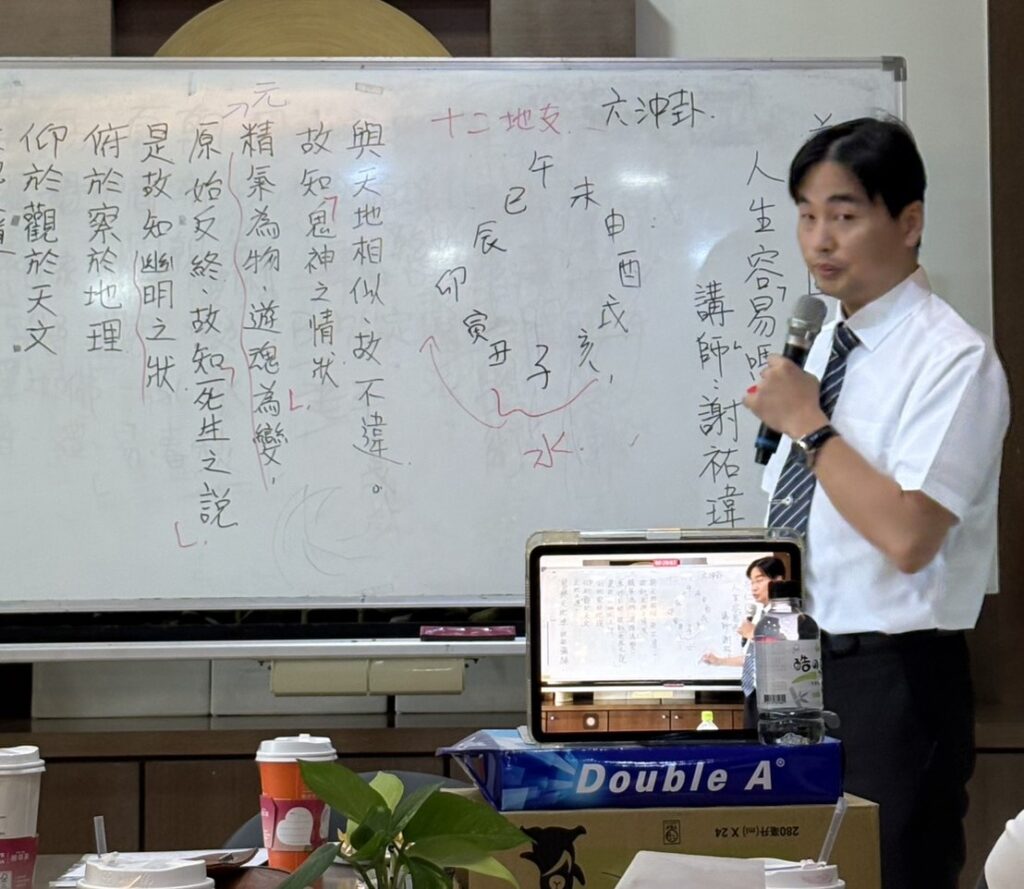 仰於觀於天文
俯於察於地理
是故知幽明之狀
原始反終、故知死生之說
元
精氣為物、遊魂為變,
故知鬼神之情狀
與天地相似、故不違。
十二地支
六沖卦
午
未
申
酉
戌
亥
子
丑
寅
卯
辰
巳
水
人生容易嗎
講師:謝祐瑋
Double A®
280毫升(ml) X 24